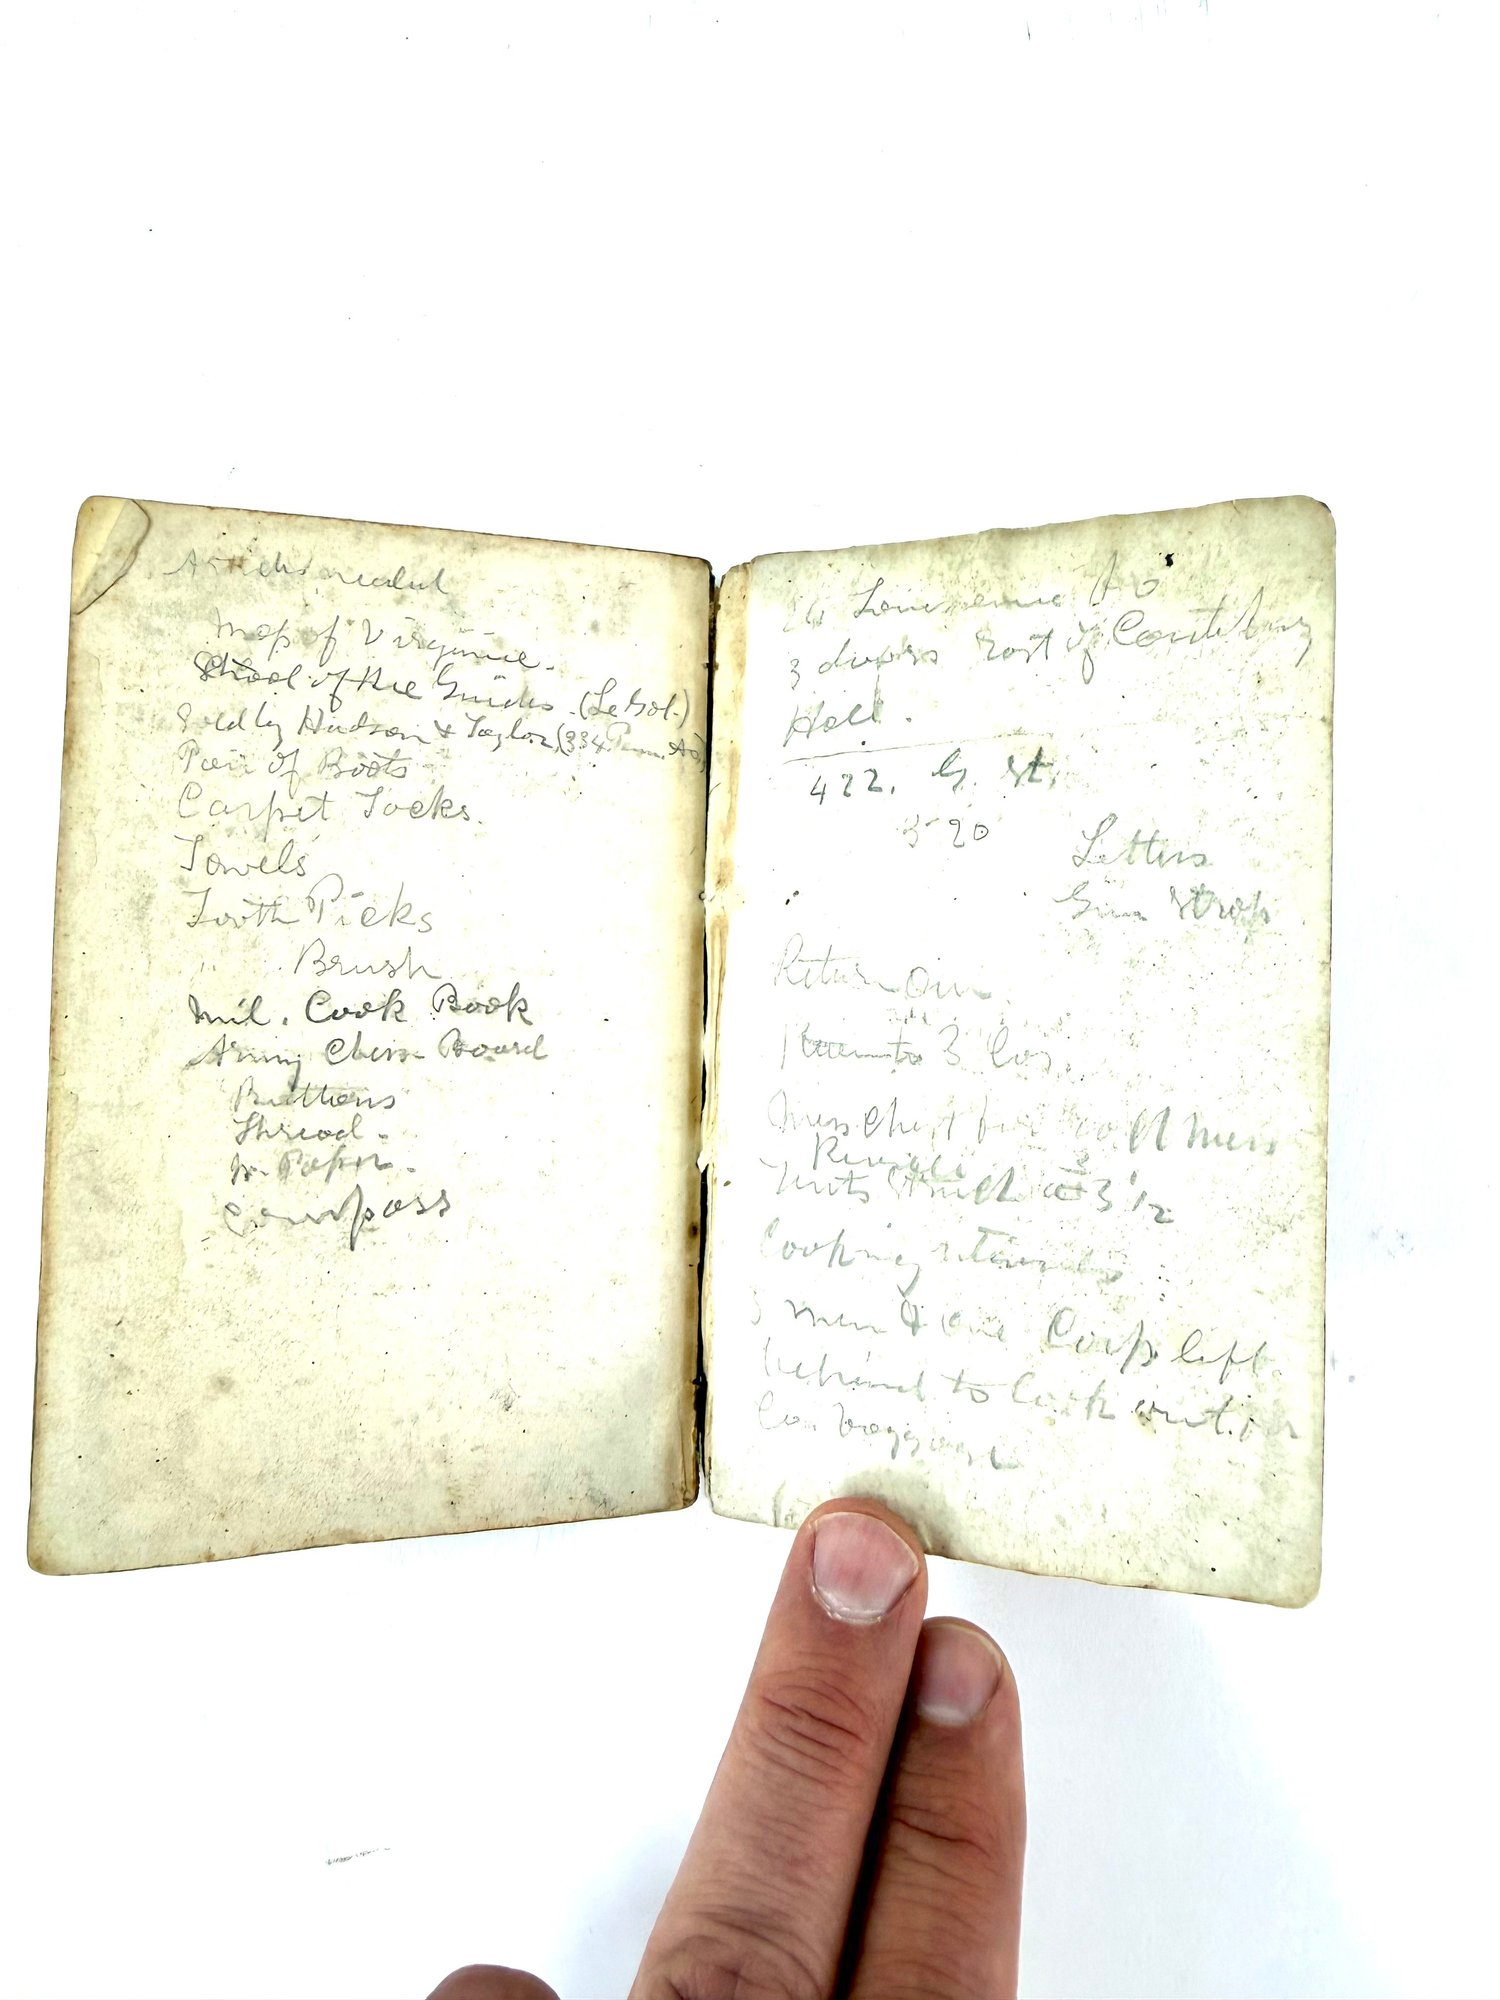 Articles needed
Map of Virginia.
School of the Guides. (Le Gal.)
Sold by Hudson & Taylor, (334 Penn. Av.)
Pair of Boots
Carpet Tacks.
Towels
Tooth Picks
" Brush
Mil. Cook Book
Army Chess Board
Buttons
Thread.
Paper.
Compass
Louisiana Av
3 doors East of Canterbury
Hall.
422. G. St.
520
Letters
Gun Strap
Return
3 Cos.
Mess Chest for Mess
Reveille 3
Tents Struck at 3 1/2
Cooking utensils
3 men & one Corp left
behind to look out for
Co. baggage